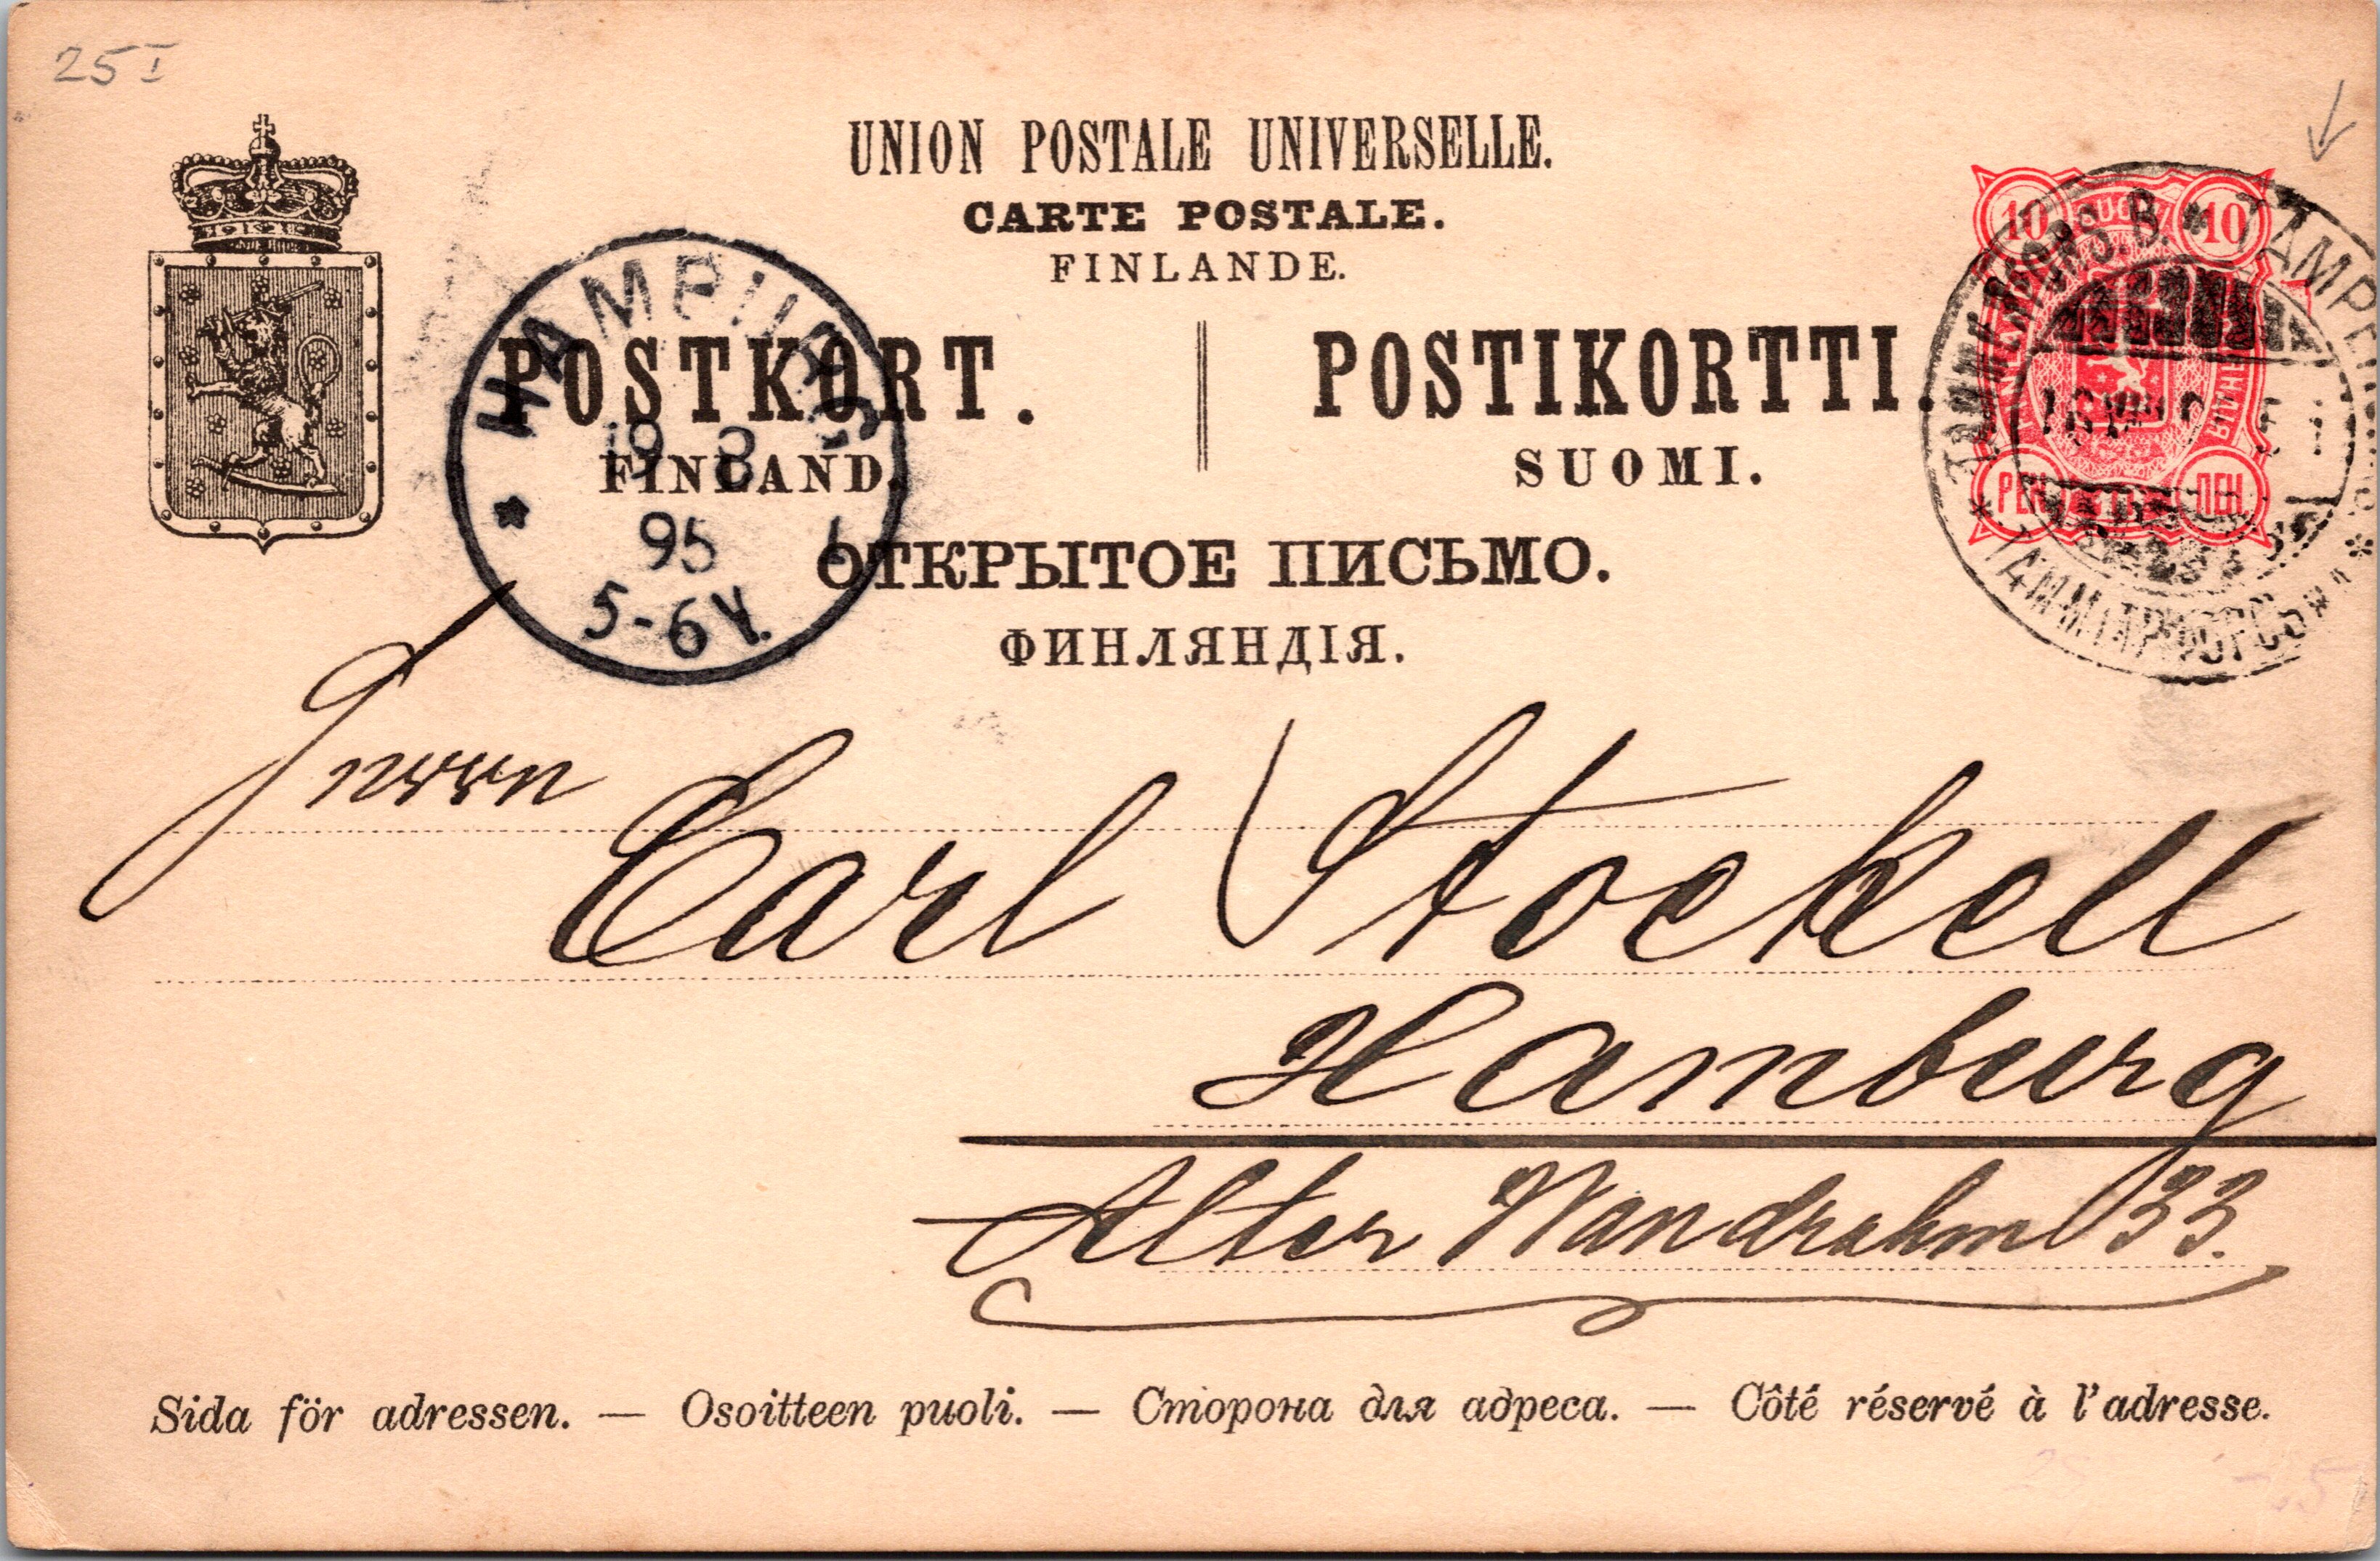 25 I
UNION POSTALE UNIVERSELLE.
CARTE POSTALE.
FINLANDE.
POSTKORT. POSTIKORTTI.
FINLAND. SUOMI.
ОТКРЫТОЕ ПИСЬМО.
ФИНЛЯНДІЯ.
HAMBURG
19 8
95
5-6 N.
1
10 10
SUOMI
PEN ПЕН
TAMMERFORS. B. * TAMPERE
ТАММЕРФОРСЪ
Herrn
Carl Stockell
Hamburg
Alter Wandrahm 33.
Sida för adressen. — Osoitteen puoli. — Сторона для адреса. — Côté réservé à l'adresse.